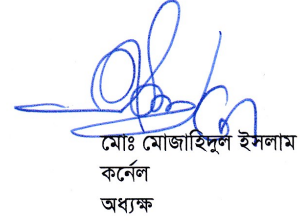 মোঃ মোজাহিদুল ইসলাম
কর্নেল
অধ্যক্ষ